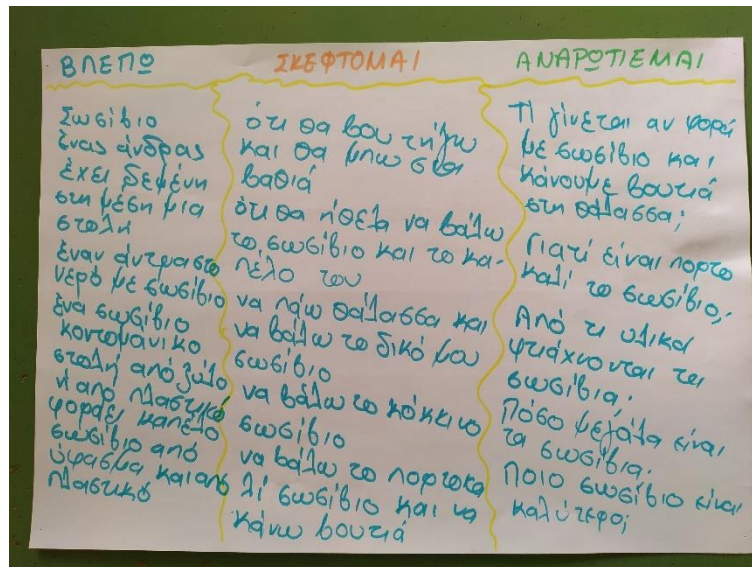 ΒΛΕΠΩ
Σωσίβιο
ένας άνδρας
έχει δεμένη
στη μέση μια
στολή
έναν άντρα στο
νερό με σωσίβιο
ένα σωσίβιο
κοντομάνικο
στολή από ξύλο
ή από πλαστικό
φοράει καπέλο
σωσίβιο από
ύφασμα και από
πλαστικό
ΣΚΕΦΤΟΜΑΙ
ότι θα βουτήξω
και θα μπω στα
βαθιά
ότι θα ήθελα να βάλω
το σωσίβιο και το κα-
πέλο του
να πάω θάλασσα και
να βάλω το δικό μου
σωσίβιο
να βάλω το κόκκινο
σωσίβιο
να βάλω το πορτοκα
λί σωσίβιο και να
κάνω βουτιά
ΑΝΑΡΩΤΙΕΜΑΙ
Τι γίνεται αν φορά
με σωσίβιο και
κάνουμε βουτιά
στη θάλασσα;
Γιατί είναι πορτο
καλί το σωσίβιο;
Από τι υλικά
φτιάχνονται τα
σωσίβια;
Πόσο μεγάλα είναι
τα σωσίβια;
Ποιο σωσίβιο είναι
καλύτερο;